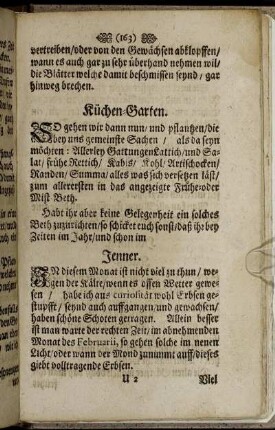 (163)
vertreiben / oder von den Gewächsen abklopffen /
wann es auch gar zu sehr überhand nehmen wil /
die Blätter welche damit beschmissen seynd / gar
hinweg brechen.
Küchen-Garten.
SO gehen wir dann nun / und pflantzen / die
bey uns gemeinste Sachen / als da seyn
möchten: Allerley Gattungen Lattich / und Sa-
lat / frühe Rettich / Kabis / Kohl / Artischocken /
Randen / Summa / alles was sich versetzen läst /
zum allerersten in das angezeigte Frühe- oder
Mist Beth.
Habt ihr aber keine Gelegenheit ein solches
Beth zuzurichten / so schicket euch sonst / daß ihr bey
Zeiten im Jahr / und schon im
Jenner.
IN diesem Monat ist nicht viel zu thun / we-
gen der Kälte / wenn es offen Wetter gewe-
sen / habe ich aus curiosität wohl Erbsen ge-
stupfft / seynd auch auffgangen / und gewachsen /
haben schöne Schoten getragen. Allein besser
ist man warte der rechten Zeit / im abnehmenden
Monat des Februarii, so gehen solche im neuen
Licht / oder wann der Mond zunimmt auff / dieses
giebt volltragende Erbsen.
U 2 Viel